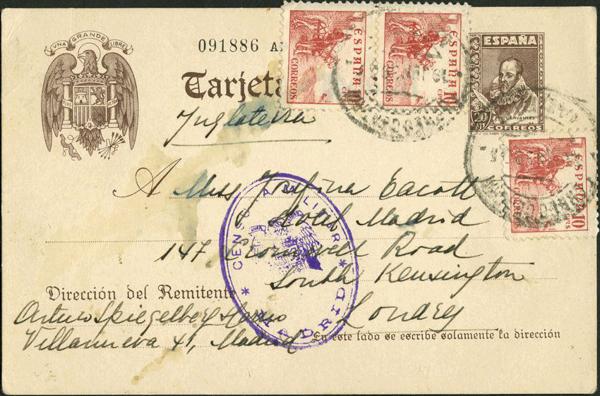 UNA GRANDE LIBRE
091886 A
Tarjeta
ESPAÑA
CORREOS
ESPAÑA
10
CORREOS
ESPAÑA
10
ESPAÑA
CERVANTES
20
CORREOS
ESPAÑA
10
Inglaterra
A Miss Josefina Eacott
Hotel Madrid
147 Cromwell Road
South Kensington
Londres
CENSURA MILITAR
* MADRID *
Dirección del Remitente
Arturo Spiegelberg
Villanueva 41, Madrid
En este lado se escribe solamente la dirección